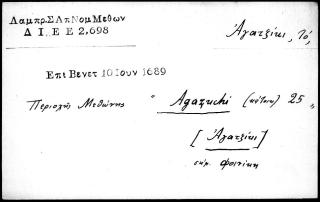 Λαμπρ.Σ.Λπ Νομ Μεθων
Δ Ι Ε Ε 2,698
Ἀγατζίκι, τό,
Επι Βενετ 10 Ιουν 1689
Περιοχῆς Μεθώνης " Agazuchi 25 "
[ Ἀγατζίκι ]
σήμ. Φοινίκη